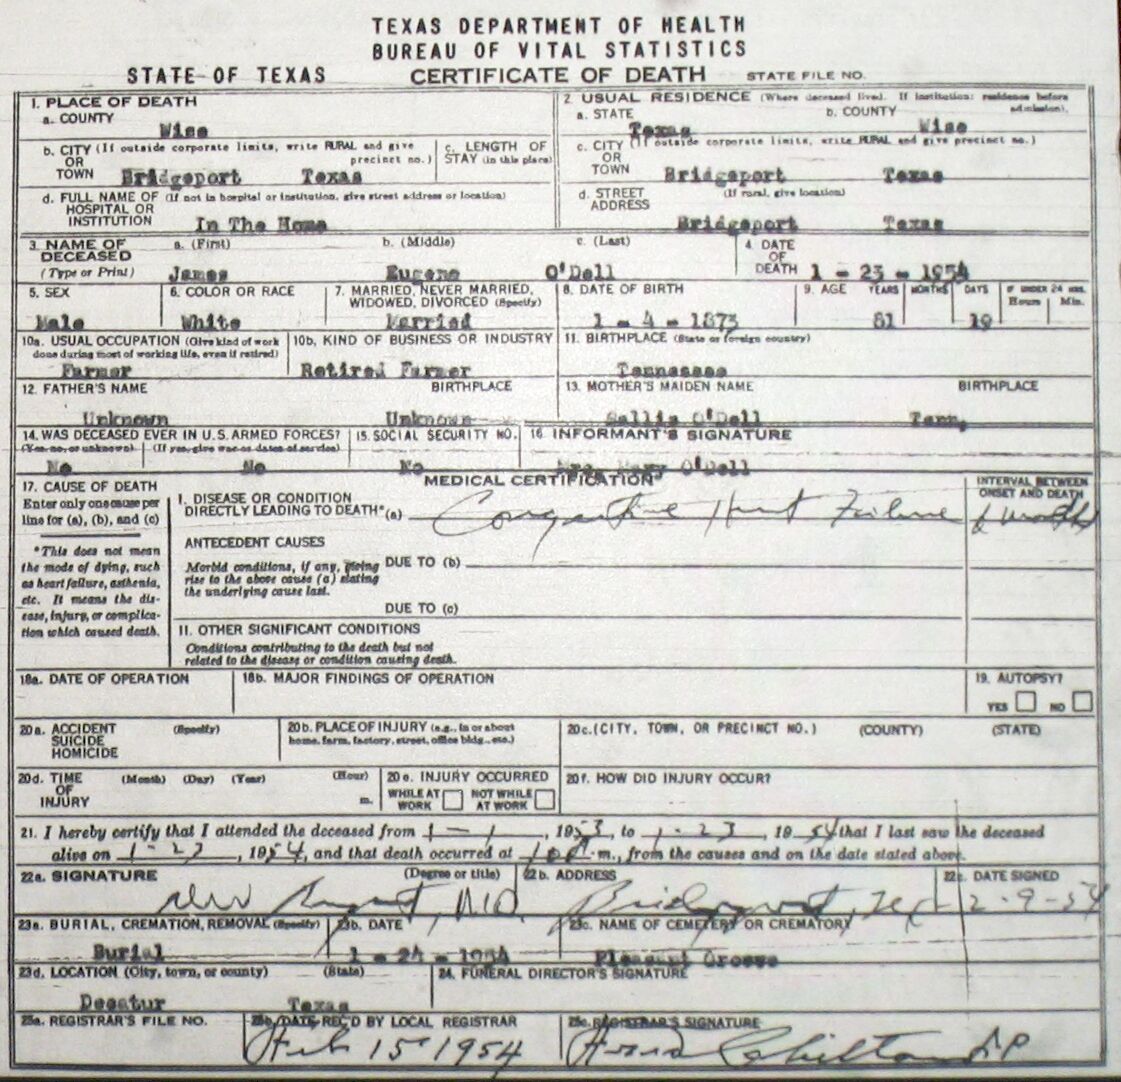 TEXAS DEPARTMENT OF HEALTH
BUREAU OF VITAL STATISTICS
STATE OF TEXAS CERTIFICATE OF DEATH STATE FILE NO.
1. PLACE OF DEATH
a. COUNTY
Wise
2. USUAL RESIDENCE (Where deceased lived. If institution: residence before admission).
a. STATE b. COUNTY
Texas Wise
b. CITY (If outside corporate limits, write RURAL and give
OR precinct no.)
TOWN Bridgeport Texas
c. LENGTH OF
STAY (in this place)
c. CITY (If outside corporate limits, write RURAL and give precinct no.)
OR
TOWN Bridgeport Texas
d. FULL NAME OF (If not in hospital or institution, give street address or location)
HOSPITAL OR
INSTITUTION In The Home
d. STREET (If rural, give location)
ADDRESS
Bridgeport Texas
3. NAME OF a. (First) b. (Middle) c. (Last)
DECEASED
(Type or Print) James Eugene O'Dell
4. DATE
OF
DEATH 1 - 23 - 1954
5. SEX
Male
6. COLOR OR RACE
White
7. MARRIED, NEVER MARRIED,
WIDOWED, DIVORCED (Specify)
Married
8. DATE OF BIRTH
1 - 4 - 1873
9. AGE YEARS MONTHS DAYS IF UNDER 24 HRS.
Hours Min.
81 19
10a. USUAL OCCUPATION (Give kind of work
done during most of working life, even if retired)
Farmer
10b. KIND OF BUSINESS OR INDUSTRY
Retired Farmer
11. BIRTHPLACE (State or foreign country)
Tennessee
12. FATHER'S NAME BIRTHPLACE
Unknown Unknown
13. MOTHER'S MAIDEN NAME BIRTHPLACE
Sallie O'Dell Tenn.
14. WAS DECEASED EVER IN U.S. ARMED FORCES?
(Yes, no, or unknown) (If yes, give war or dates of service)
No No
15. SOCIAL SECURITY NO.
No
16. INFORMANT'S SIGNATURE
Mrs. Mary O'Dell
MEDICAL CERTIFICATION
17. CAUSE OF DEATH
Enter only one cause per
line for (a), (b), and (c)
*This does not mean
the mode of dying, such
as heart failure, asthenia,
etc. It means the dis-
ease, injury, or complica-
tion which caused death.
I. DISEASE OR CONDITION
DIRECTLY LEADING TO DEATH* (a) Congestive Heart Failure
INTERVAL BETWEEN
ONSET AND DEATH
6 months
ANTECEDENT CAUSES
Morbid conditions, if any, giving
rise to the above cause (a) stating
the underlying cause last.
DUE TO (b)
DUE TO (c)
II. OTHER SIGNIFICANT CONDITIONS
Conditions contributing to the death but not
related to the disease or condition causing death.
18a. DATE OF OPERATION
18b. MAJOR FINDINGS OF OPERATION
19. AUTOPSY?
YES NO
20a. ACCIDENT (Specify)
SUICIDE
HOMICIDE
20b. PLACE OF INJURY (e.g., in or about
home, farm, factory, street, office bldg., etc.)
20c. (CITY, TOWN, OR PRECINCT NO.) (COUNTY) (STATE)
20d. TIME (Month) (Day) (Year) (Hour)
OF
INJURY m.
20e. INJURY OCCURRED
WHILE AT NOT WHILE
WORK AT WORK
20f. HOW DID INJURY OCCUR?
21. I hereby certify that I attended the deceased from 1 - 1, 1953, to 1-23, 1954 that I last saw the deceased
alive on 1-23, 1954, and that death occurred at m., from the causes and on the date stated above.
22a. SIGNATURE (Degree or title)
M.D.
22b. ADDRESS
Bridgeport, Tex
22c. DATE SIGNED
2-9-54
23a. BURIAL, CREMATION, REMOVAL (Specify)
Burial
23b. DATE
1 - 24 - 1954
23c. NAME OF CEMETERY OR CREMATORY
Pleasant Grove
23d. LOCATION (City, town, or county) (State)
Decatur Texas
24. FUNERAL DIRECTOR'S SIGNATURE
25a. REGISTRAR'S FILE NO.
25b. DATE REC'D BY LOCAL REGISTRAR
Feb 15 1954
25c. REGISTRAR'S SIGNATURE